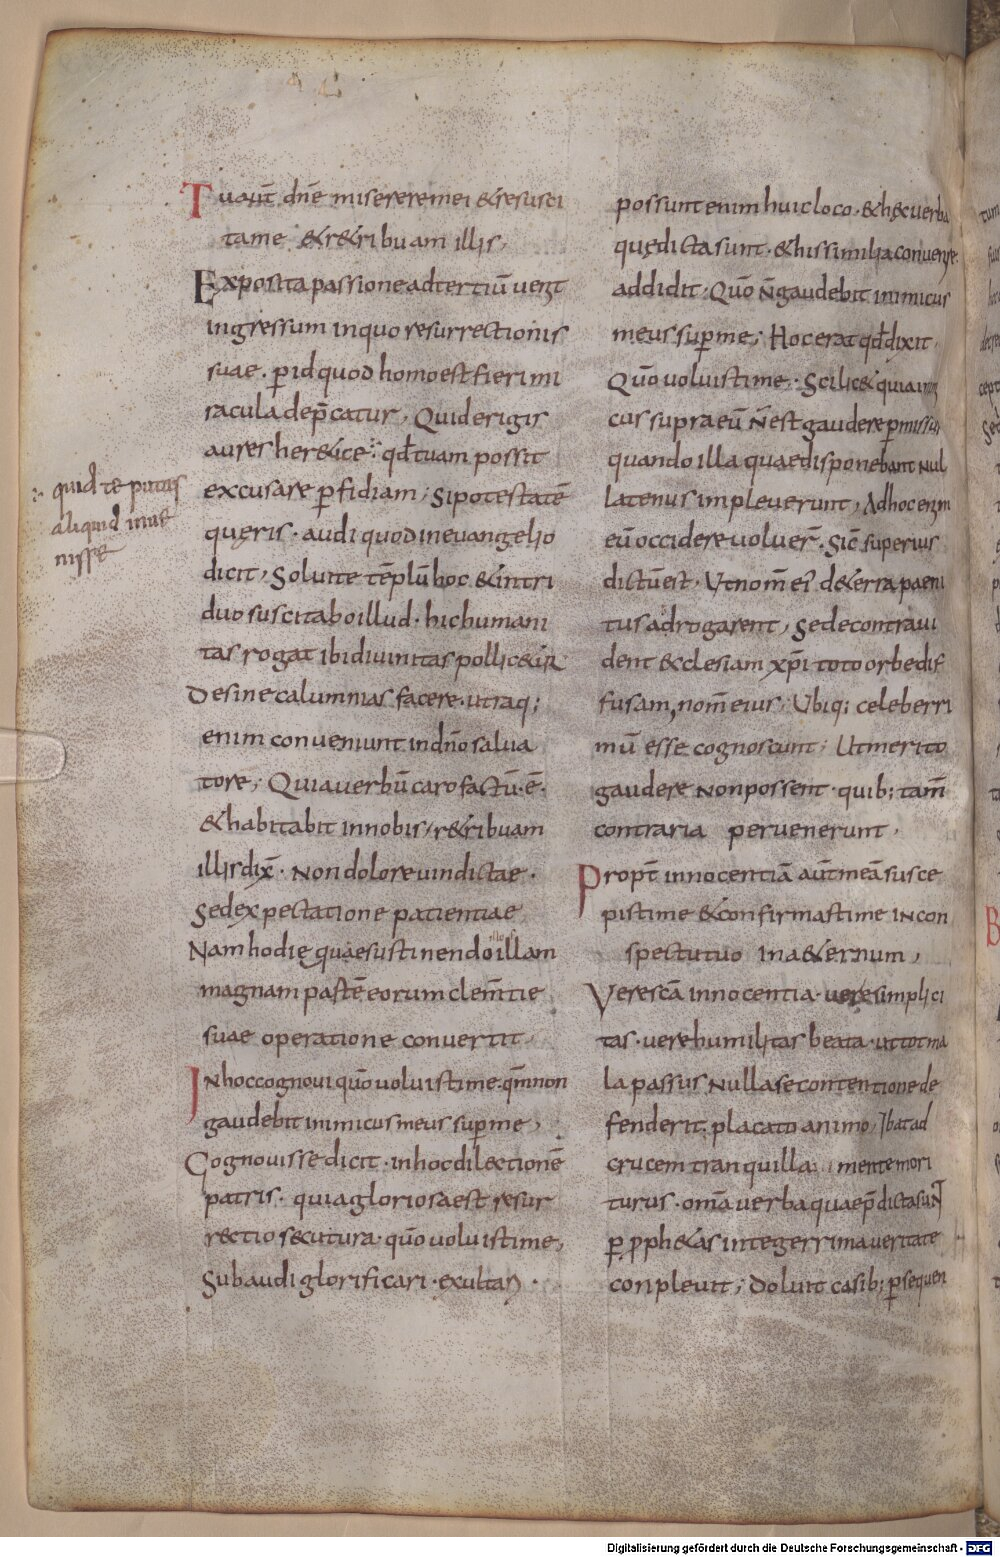 Tu aut̄ dn̄e misereremei &resusci
tame &r&ribuam illis,
Exposita passione adtertiū uenit
ingressum inquo resurrectionis
suae . p̱idquod homo est fierimi
racula dep̄catur, Quiderigis
aures her&ice qđtuam possit
excusare p̱fidiam, Sipotestatē
queris . audi quodineuangelio
dicit, Soluite tēplū hoc &intri
duo suscitabo illud . hic humani
tas rogat ibi diuinitas pollic&ur
Desine calumnias facere . utraq;
enim conueniunt indn̄o salua
tore, Quia uerbū caro factū . ē .
&habitabit innobis, r&ribuam
illis dix̄ . Non dolore uindictae .
Sed expectatione patientiae
Nam hodie quae sustinendo illam
magnam partē eorum clem̄tie
suae operatione conuertit,
Inhoc cognoui quō uoluistime . qm̄ non
gaudebit inimicus meus sup̱me,
Cognouisse dicit . inhoc dilectionē
patris . quia gloriosa est resur
rectio secutura . quō uoluistime,
Subaudi glorificari . exultan .
quid te putas
aliquid inue
nisse
possunt enim huic loco . &hęc uerba
quędicta sunt . &hissimilia conuerse .
addidit, Quō n̄ gaudebit inimicus
meus sup̱me, Hoc erat qđ dixit,
Quō uoluistime . Scilic& quia inimi
cus supra eū n̄ est gaudere p̱missus
quando illa quae disponebant nul
latenus impleuerunt, Adhoc enim
eū occidere uoluer̄ . Sic̄ superius
dictū est . Vt nom̄ ei' d&erra paeni
tus adrogarent, Sed econtra ui
dent &clesiam xp̄i toto orbe dif
fusam, nom̄ eius . Vbiq; celeberri
mū esse cognoscunt, Ut merito
gaudere non possent . quib; tam̄
contraria peruenerunt,
Propt̄ innocentiā aut̄ meā susce
pistime &confirmastime incon
spectu tuo in a&ernum,
Vere sc̄a innocentia . uere simplici
tas . uere humilitas beata . ut tot ma
la passus nulla se contentione de
fenderit, placato animo, Ibat ad
crucem tranquilla mente mori
turus . om̄a uerba quae p̄dicta sunt
p̱ pph&as integerrima ueritate
conpleuit, Doluit casib; p̱sequen